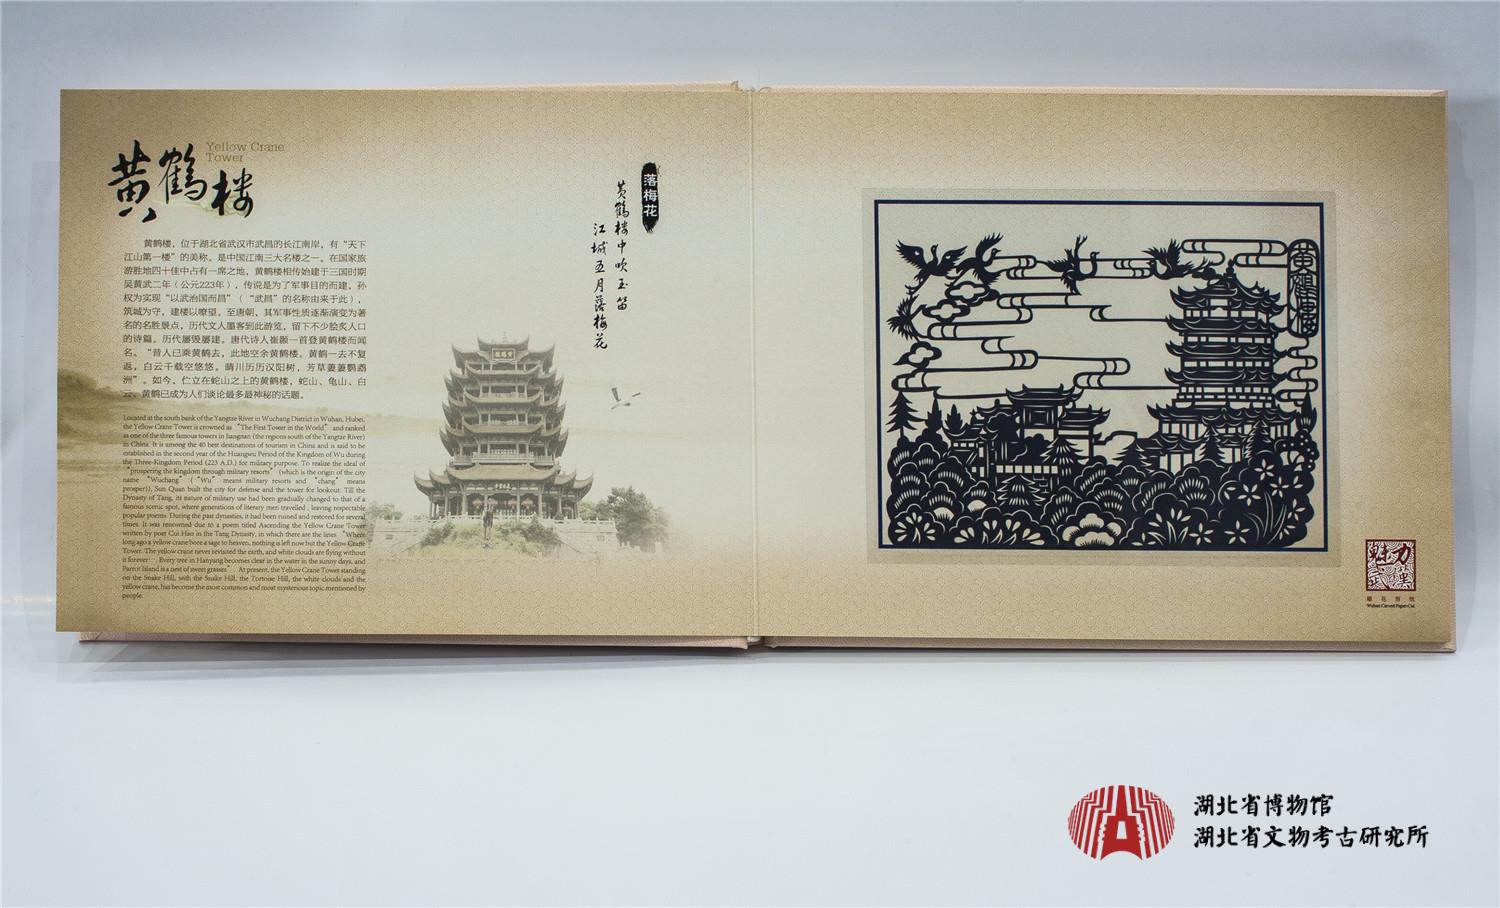 黄鹤楼
Yellow Crane
Tower
黄鹤楼，位于湖北省武汉市武昌的长江南岸，有“天下
江山第一楼”的美称。是中国江南三大名楼之一。在国家旅
游胜地四十佳中占有一席之地，黄鹤楼相传始建于三国时期
吴黄武二年（公元223年），传说是为了军事目的而建，孙
权为实现“以武治国而昌”（“武昌”的名称由来于此），
筑城为守，建楼以瞭望。至唐朝，其军事性质逐渐演变为著
名的名胜景点，历代文人墨客到此游览，留下不少脍炙人口
的诗篇。历代屡毁屡建。唐代诗人崔颢一首登黄鹤楼而闻
名。“昔人已乘黄鹤去，此地空余黄鹤楼。黄鹤一去不复
返，白云千载空悠悠。晴川历历汉阳树，芳草萋萋鹦鹉
洲”。如今，伫立在蛇山之上的黄鹤楼，蛇山、龟山、白
云、黄鹤已成为人们谈论最多最神秘的话题。
Located at the south bank of the Yangtze River in Wuchang District in Wuhan, Hubei,
the Yellow Crane Tower is crowned as “The First Tower in the World” and ranked
as one of the three famous towers in Jiangnan (the regions south of the Yangtze River)
in China. It is among the 40 best destinations of tourism in China and is said to be
established in the second year of the Huangwu Period of the Kingdom of Wu during
the Three-Kingdom Period (223 A.D.) for military purpose. To realize the ideal of
“prospering the kingdom through military resorts” (which is the origin of the city
name “Wuchang” (“Wu” means military resorts and “chang” means
prosper)), Sun Quan built the city for defense and the tower for lookout. Till the
Dynasty of Tang, its nature of military use had been gradually changed to that of a
famous scenic spot, where generations of literary men travelled , leaving respectable
popular poems. During the past dynasties, it had been ruined and restored for several
times. It was renowned due to a poem titled Ascending the Yellow Crane Tower
written by poet Cui Hao in the Tang Dynasty, in which there are the lines “Where
long ago a yellow crane bore a sage to heaven, nothing is left now but the Yellow Crane
Tower. The yellow crane never revisited the earth, and white clouds are flying without
it forever… Every tree in Hanyang becomes clear in the water in the sunny days, and
Parrot Island is a nest of sweet grasses”. At present, the Yellow Crane Tower standing
on the Snake Hill, with the Snake Hill, the Tortoise Hill, the white clouds and the
yellow crane, has become the most common and most mysterious topic mentioned by
people.
落梅花
黄鹤楼中吹玉笛
江城五月落梅花
黄鹤楼
雕花剪纸
Wuhan Carved Paper-Cut
湖北省博物馆
湖北省文物考古研究所